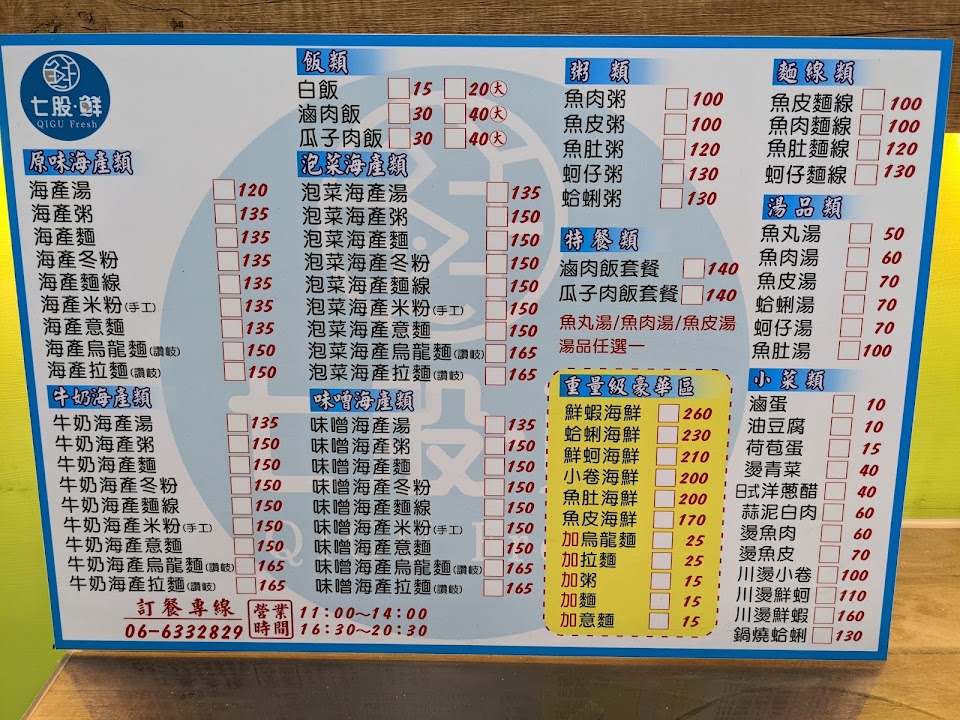 七股·鮮
QIGU Fresh
原味海產類
海產湯 120
海產粥 135
海產麵 135
海產冬粉 135
海產麵線 135
海產米粉(手工) 135
海產意麵 135
海產烏龍麵(讚岐) 150
海產拉麵(讚岐) 150
牛奶海產類
牛奶海產湯 135
牛奶海產粥 150
牛奶海產麵 150
牛奶海產冬粉 150
牛奶海產麵線 150
牛奶海產米粉(手工) 150
牛奶海產意麵 150
牛奶海產烏龍麵(讚岐) 165
牛奶海產拉麵(讚岐) 165
飯類
白飯 15 20大
滷肉飯 30 40大
瓜子肉飯 30 40大
泡菜海產類
泡菜海產湯 135
泡菜海產粥 150
泡菜海產麵 150
泡菜海產冬粉 150
泡菜海產麵線 150
泡菜海產米粉(手工) 150
泡菜海產意麵 150
泡菜海產烏龍麵(讚岐) 165
泡菜海產拉麵(讚岐) 165
味噌海產類
味噌海產湯 135
味噌海產粥 150
味噌海產麵 150
味噌海產冬粉 150
味噌海產麵線 150
味噌海產米粉(手工) 150
味噌海產意麵 150
味噌海產烏龍麵(讚岐) 165
味噌海產拉麵(讚岐) 165
粥類
魚肉粥 100
魚皮粥 100
魚肚粥 120
蚵仔粥 130
蛤蜊粥 130
特餐類
滷肉飯套餐 140
瓜子肉飯套餐 140
魚丸湯/魚肉湯/魚皮湯
湯品任選一
重量級豪華區
鮮蝦海鮮 260
蛤蜊海鮮 230
鮮蚵海鮮 210
小卷海鮮 200
魚肚海鮮 200
魚皮海鮮 170
加烏龍麵 25
加拉麵 25
加粥 15
加麵 15
加意麵 15
麵線類
魚皮麵線 100
魚肉麵線 100
魚肚麵線 120
蚵仔麵線 130
湯品類
魚丸湯 50
魚肉湯 60
魚皮湯 70
蛤蜊湯 70
蚵仔湯 70
魚肚湯 100
小菜類
滷蛋 10
油豆腐 10
荷包蛋 15
燙青菜 40
日式洋蔥醋 40
蒜泥白肉 60
燙魚肉 60
燙魚皮 70
川燙小卷 100
川燙鮮蚵 110
川燙鮮蝦 160
鍋燒蛤蜊 130
訂餐專線
06-6332829
營業時間
11:00～14:00
16:30～20:30